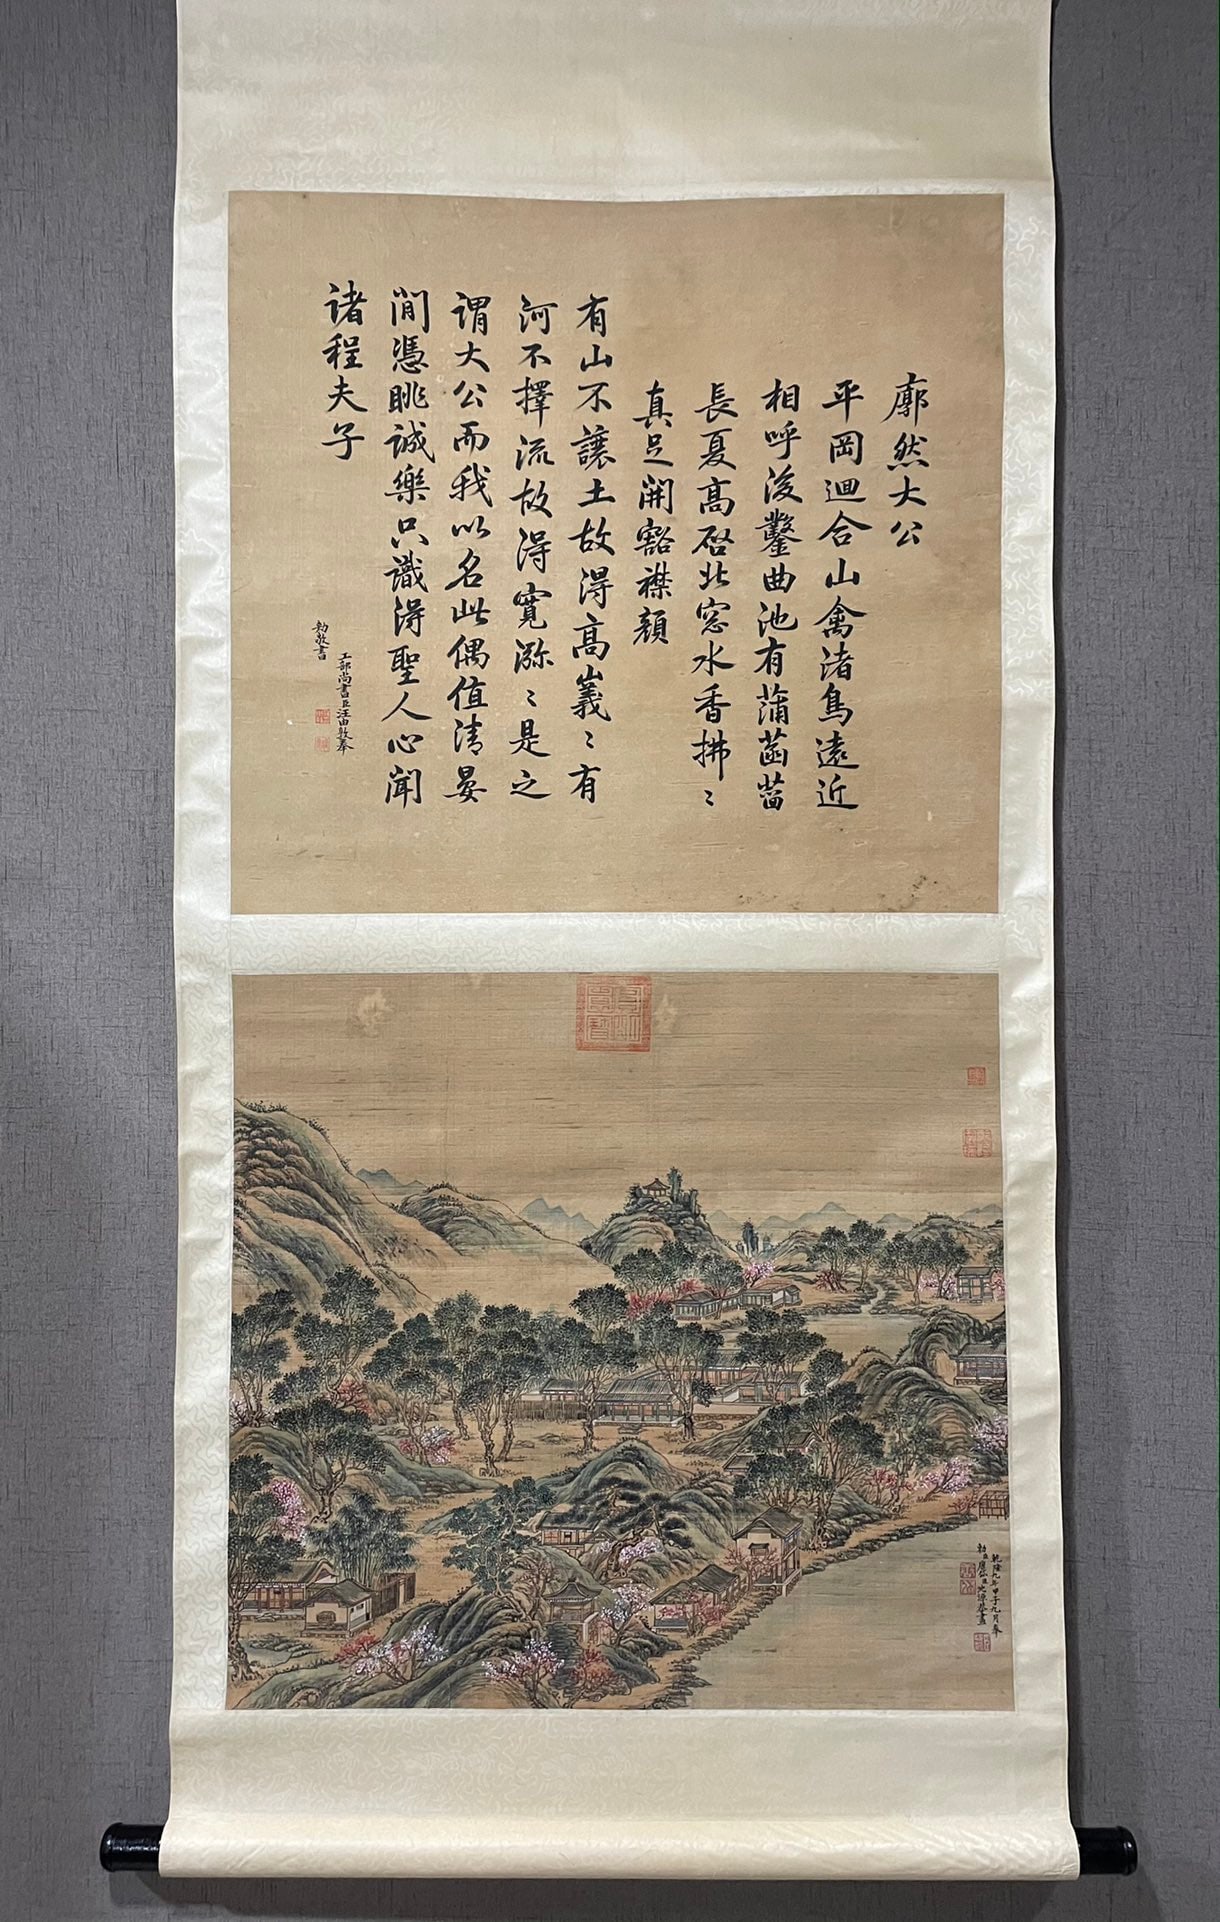 廓然大公
平岡迴合山禽渚鳥遠近
相呼後鑿曲池有蒲菡萏
長夏高啓北窓水香拂〻
真足開豁襟顏
有山不讓土故得高嶪〻有
河不擇流故得寬瀰〻是之
謂大公而我以名此偶值清晏
閒憑眺誠樂只識得聖人心聞
諸程夫子
工部尚書臣汪由敦奉
勅敬書
乾隆九年甲子九月奉
勅臣唐岱臣沈源恭畫